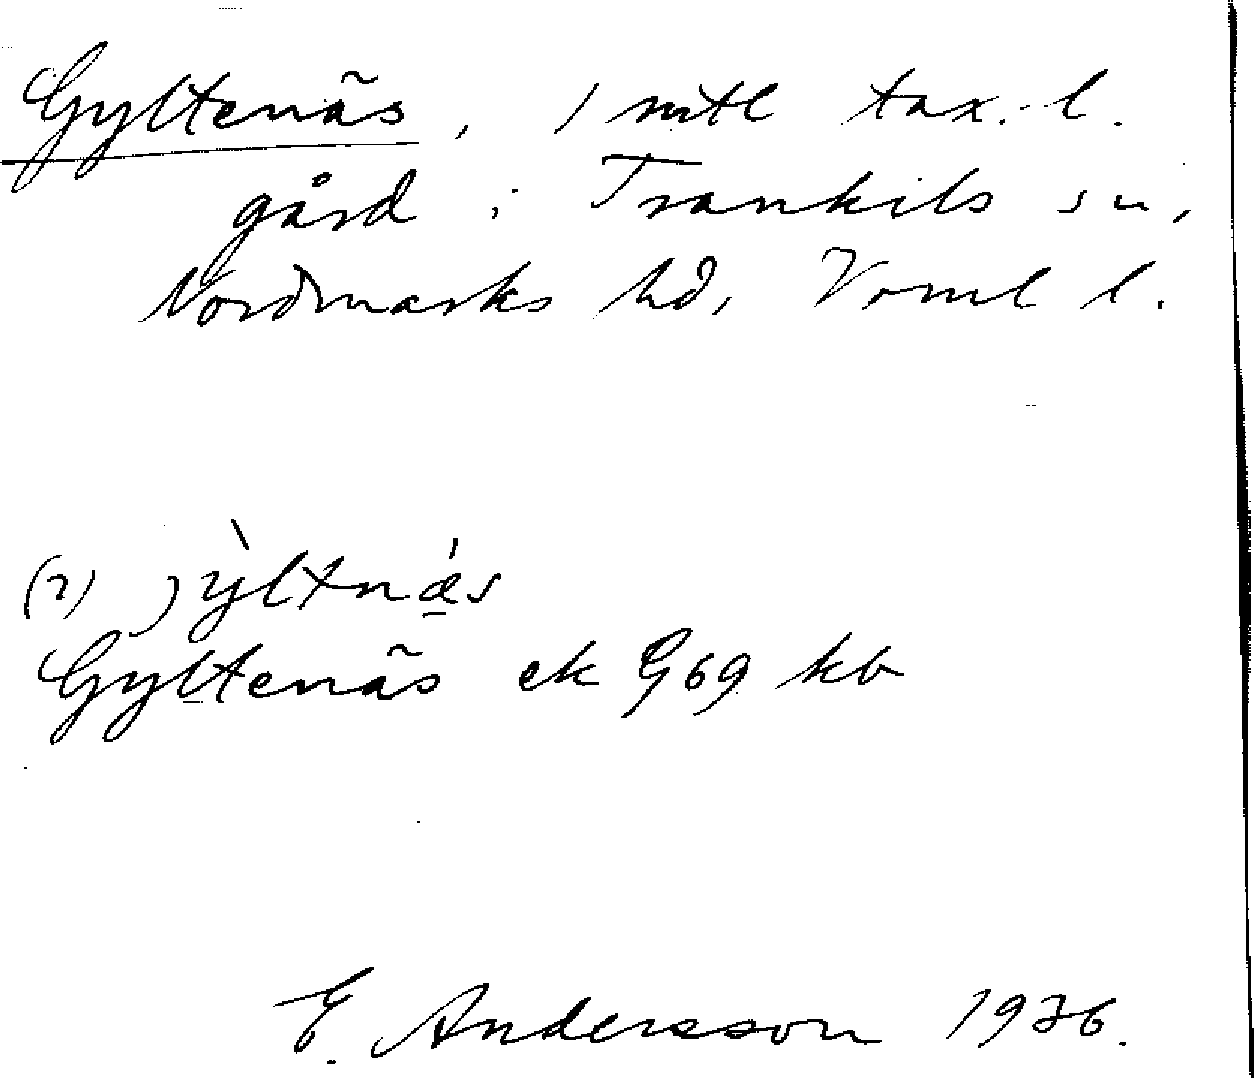 Gyltenäs, 1 mtl tax. l.
gård i Trankils sn,
Nordmarks hd, Värml l.
(2) jỳltnǽs
Gyltenäs ek G 69 kb
E. Andersson 1936.